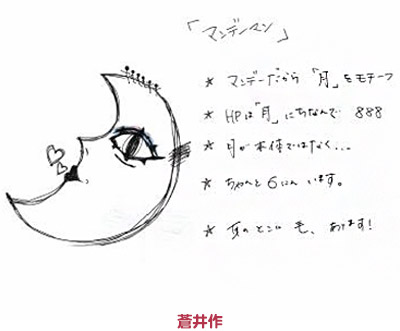 「マンデーマン」
* マンデーだから「月」をモチーフ
* HPは「月」にちなんで 888
* 月が本体ではなく...
* ちゃんと6にん います。
* 頁のとこに毛、あります!
蒼井作